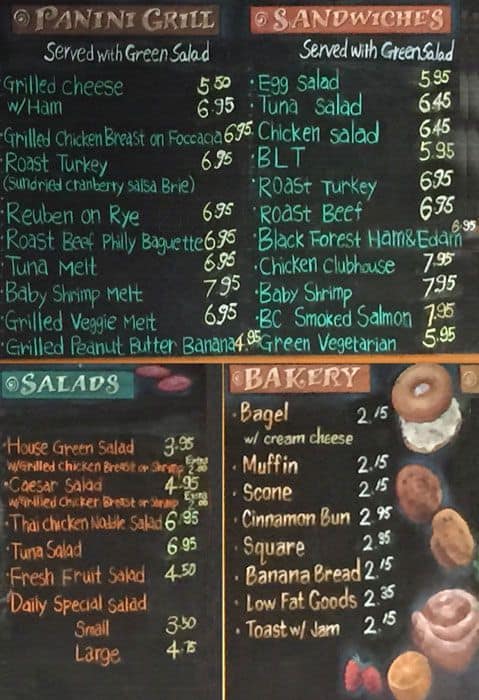 PANINI GRILL
Served with Green Salad
Grilled cheese 5.50
w/Ham 6.95
Grilled Chicken Breast on Foccacia 6.95
Roast Turkey 6.95
(Sundried cranberry salsa Brie)
Reuben on Rye 6.95
Roast Beef Philly Baguette 6.95
Tuna Melt 6.95
Baby Shrimp Melt 7.95
Grilled Veggie Melt 6.95
Grilled Peanut Butter Banana 4.95
SANDWICHES
Served with Green Salad
Egg Salad 5.95
Tuna Salad 6.45
Chicken salad 6.45
BLT 5.95
Roast Turkey 6.95
Roast Beef 6.95
Black Forest Ham & Edam 6.95
Chicken Clubhouse 7.95
Baby Shrimp 7.95
BC Smoked Salmon 7.95
Green Vegetarian 5.95
SALADS
House Green Salad 3.95
w/Grilled Chicken Breast or Shrimp Extra
Caesar Salad 4.95
w/Grilled Chicken Breast or Shrimp Extra
Thai chicken Noodle Salad 6.95
Tuna Salad 6.95
Fresh Fruit Salad 4.50
Daily Special Salad
Small 3.50
Large 4.75
BAKERY
Bagel 2.15
w/ cream cheese
Muffin 2.15
Scone 2.15
Cinnamon Bun 2.95
Square 2.95
Banana Bread 2.15
Low Fat Goods 2.35
Toast w/ Jam 2.15